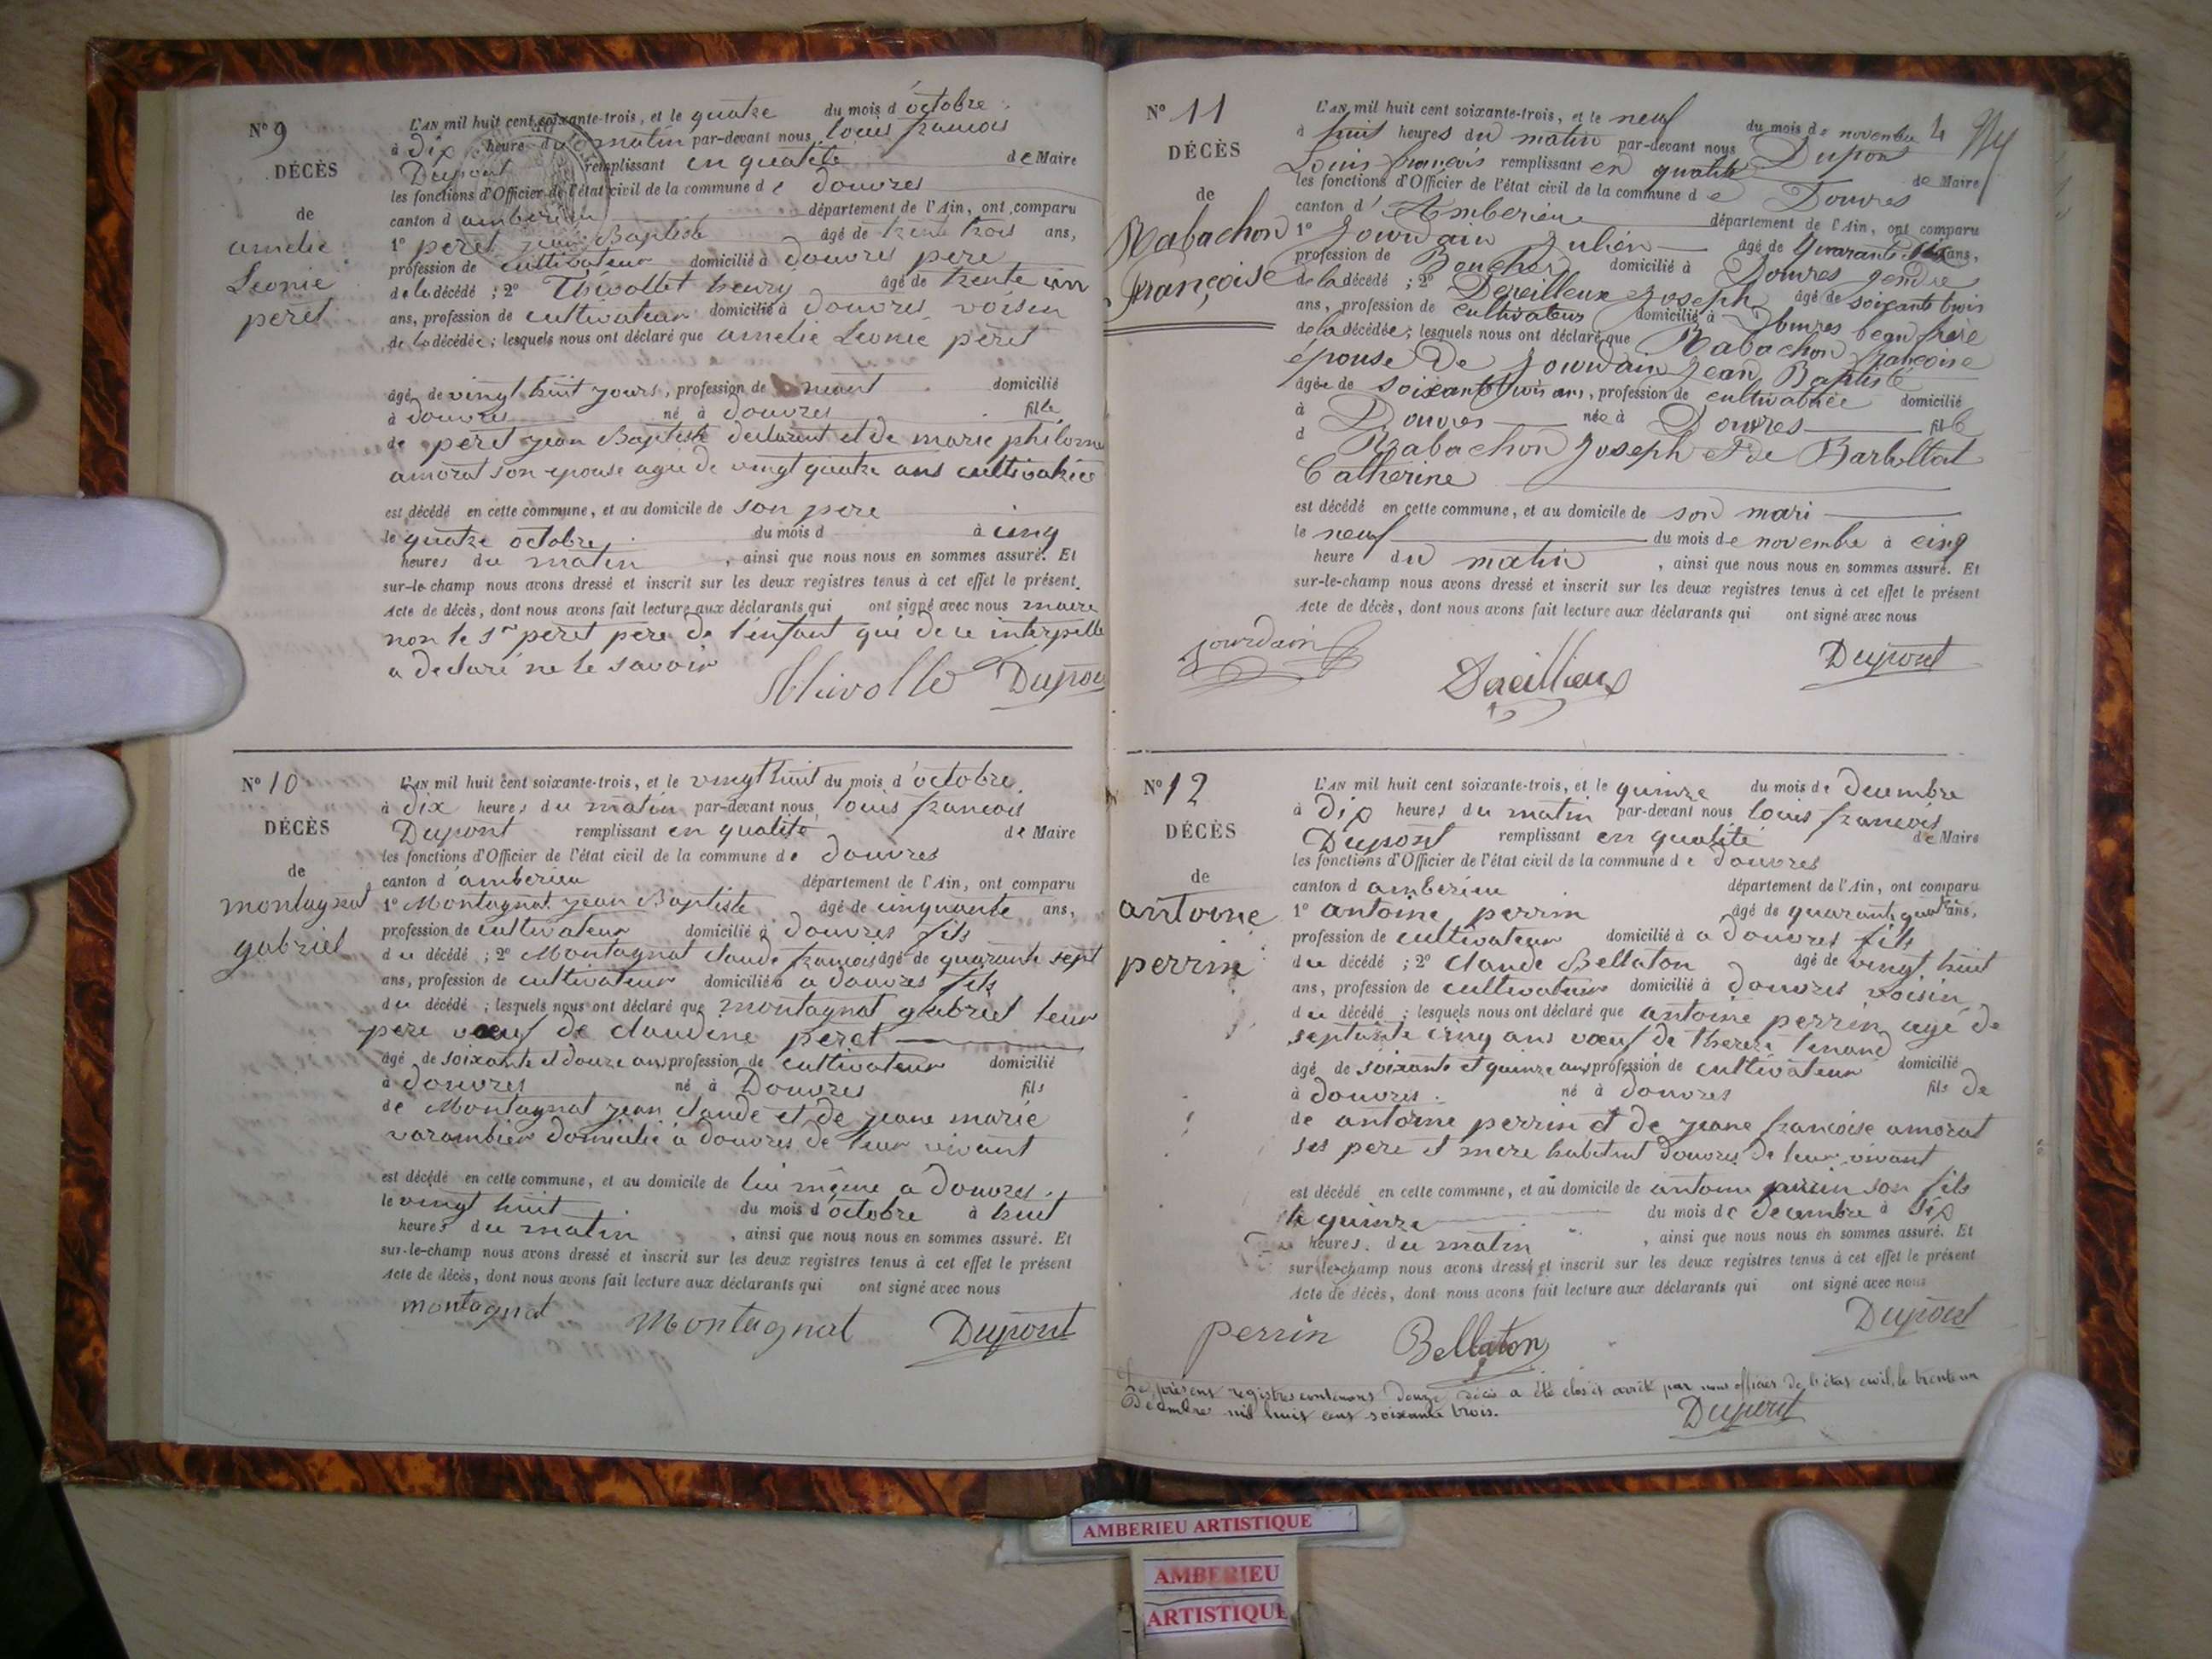 N° 9
DÉCÈS
de
amelie
Leonie
peret
L'AN mil huit cent soixante-trois, et le quatre du mois d'octobre
à dix heure du matin par-devant nous louis francois
Dupont remplissant en qualité de Maire
les fonctions d'Officier de l'état civil de la commune de douvres
canton d amberieu département de l'Ain, ont comparu
1° peret jean Baptiste âgé de trente trois ans,
profession de cultivateur domicilié à douvres pere
de la décédé ; 2° Thivollet henry âgé de trente un
ans, profession de cultivateur domicilié à douvres voisin
de la décédée ; lesquels nous ont déclaré que amelie Leonie peret
âgé de vingt huit jours, profession de neant domicilié
à douvres né à douvres fille
de peret jean Baptiste declarant et de marie philomene
amorat son epouse agée de vingt quatre ans cultivatrice
est décédé en cette commune, et au domicile de son pere
le quatre octobre du mois d à cinq
heures du matin , ainsi que nous nous en sommes assuré. Et
sur-le-champ nous avons dressé et inscrit sur les deux registres tenus à cet effet le présent
Acte de décès, dont nous avons fait lecture aux déclarants qui ont signé avec nous maire
non le sr peret pere de l'enfant qui de ce interpellé
a declaré ne le savoir
Thivolle Dupont
N° 10
DÉCÈS
de
montagnat
gabriel
L'AN mil huit cent soixante-trois, et le vingt huit du mois d'octobre
à dix heures du matin par-devant nous louis francois
Dupont remplissant en qualité de Maire
les fonctions d'Officier de l'état civil de la commune de douvres
canton d'amberieu département de l'Ain, ont comparu
1° Montagnat jean Baptiste âgé de cinquante ans,
profession de cultivateur domicilié à douvres fils
du décédé ; 2° Montagnat claude francois âgé de quarante sept
ans, profession de cultivateur domicilié à a douvres fils
du décédé ; lesquels nous ont déclaré que montagnat gabriel leur
pere vœuf de claudine peret
âgé de soixante et douze ans profession de cultivateur domicilié
à douvres né à Douvres fils
de Montagnat jean claude et de jeane marie
varambier domicilié a douvres de leur vivant
est décédé en cette commune, et au domicile de lui même a douvres
le vingt huit du mois d'octobre à huit
heures du matin , ainsi que nous nous en sommes assuré. Et
sur-le-champ nous avons dressé et inscrit sur les deux registres tenus à cet effet le présent
Acte de décès, dont nous avons fait lecture aux déclarants qui ont signé avec nous
montagnat Montagnat Dupont
N° 11
DÉCÈS
de
Rabachon
françoise
L'AN mil huit cent soixante-trois, et le neuf du mois de novembre 4
à huit heures du matin par-devant nous Dupont
Louis françois remplissant en qualité de Maire
les fonctions d'Officier de l'état civil de la commune de Douvres
canton d'Amberieu département de l'Ain, ont comparu
1° Jourdain Julien âgé de quarante six ans,
profession de Boucher domicilié à Douvres gendre
de la décédé ; 2° Deveilleux Joseph âgé de soixante trois
ans, profession de cultivateur domicilié à Douvres beau frere
de la décédée ; lesquels nous ont déclaré que Rabachon françoise
épouse de Jourdain Jean Baptiste
âgée de soixante trois ans, profession de cultivatrice domicilié
à Douvres née à Douvres fille
d Rabachon Joseph et de Barbollat
Catherine
est décédé en cette commune, et au domicile de son mari
le neuf du mois de novembre à cinq
heure du matin , ainsi que nous nous en sommes assuré. Et
sur-le-champ nous avons dressé et inscrit sur les deux registres tenus à cet effet le présent
Acte de décès, dont nous avons fait lecture aux déclarants qui ont signé avec nous
jourdain Dupont
N° 12
DÉCÈS
de
antoine
perrin
L'AN mil huit cent soixante-trois, et le quinze du mois de decembre
à dix heures du matin par-devant nous louis francois
Dupont remplissant en qualité de Maire
les fonctions d'Officier de l'état civil de la commune de douvres
canton d amberieu département de l'Ain, ont comparu
1° antoine perrin âgé de quarante quatre ans,
profession de cultivateur domicilié à a douvres fils
du décédé ; 2° claude Bellaton âgé de vingt huit
ans, profession de cultivateur domicilié à douvres voisin
du décédé ; lesquels nous ont déclaré que antoine perrin agé de
septante cinq ans vœuf de therese tenand
âgé de soixante et quinze ans profession de cultivateur domicilié
à douvres né à douvres fils de
de antoine perrin et de jeane francoise amorat
ses pere et mere habitant douvres de leur vivant
est décédé en cette commune, et au domicile de antoine perrin son fils
le quinze du mois de decembre à six
heures du matin , ainsi que nous nous en sommes assuré. Et
sur-le-champ nous avons dressé et inscrit sur les deux registres tenus à cet effet le présent
Acte de décès, dont nous avons fait lecture aux déclarants qui ont signé avec nous
perrin Bellaton Dupont
Le présent registre contenant douze décès a été clos et arrêté par nous officier de l'état civil, le trente un
Decembre mil huit cent soixante trois. Dupont
AMBERIEU ARTISTIQUE
AMBERIEU
ARTISTIQUE